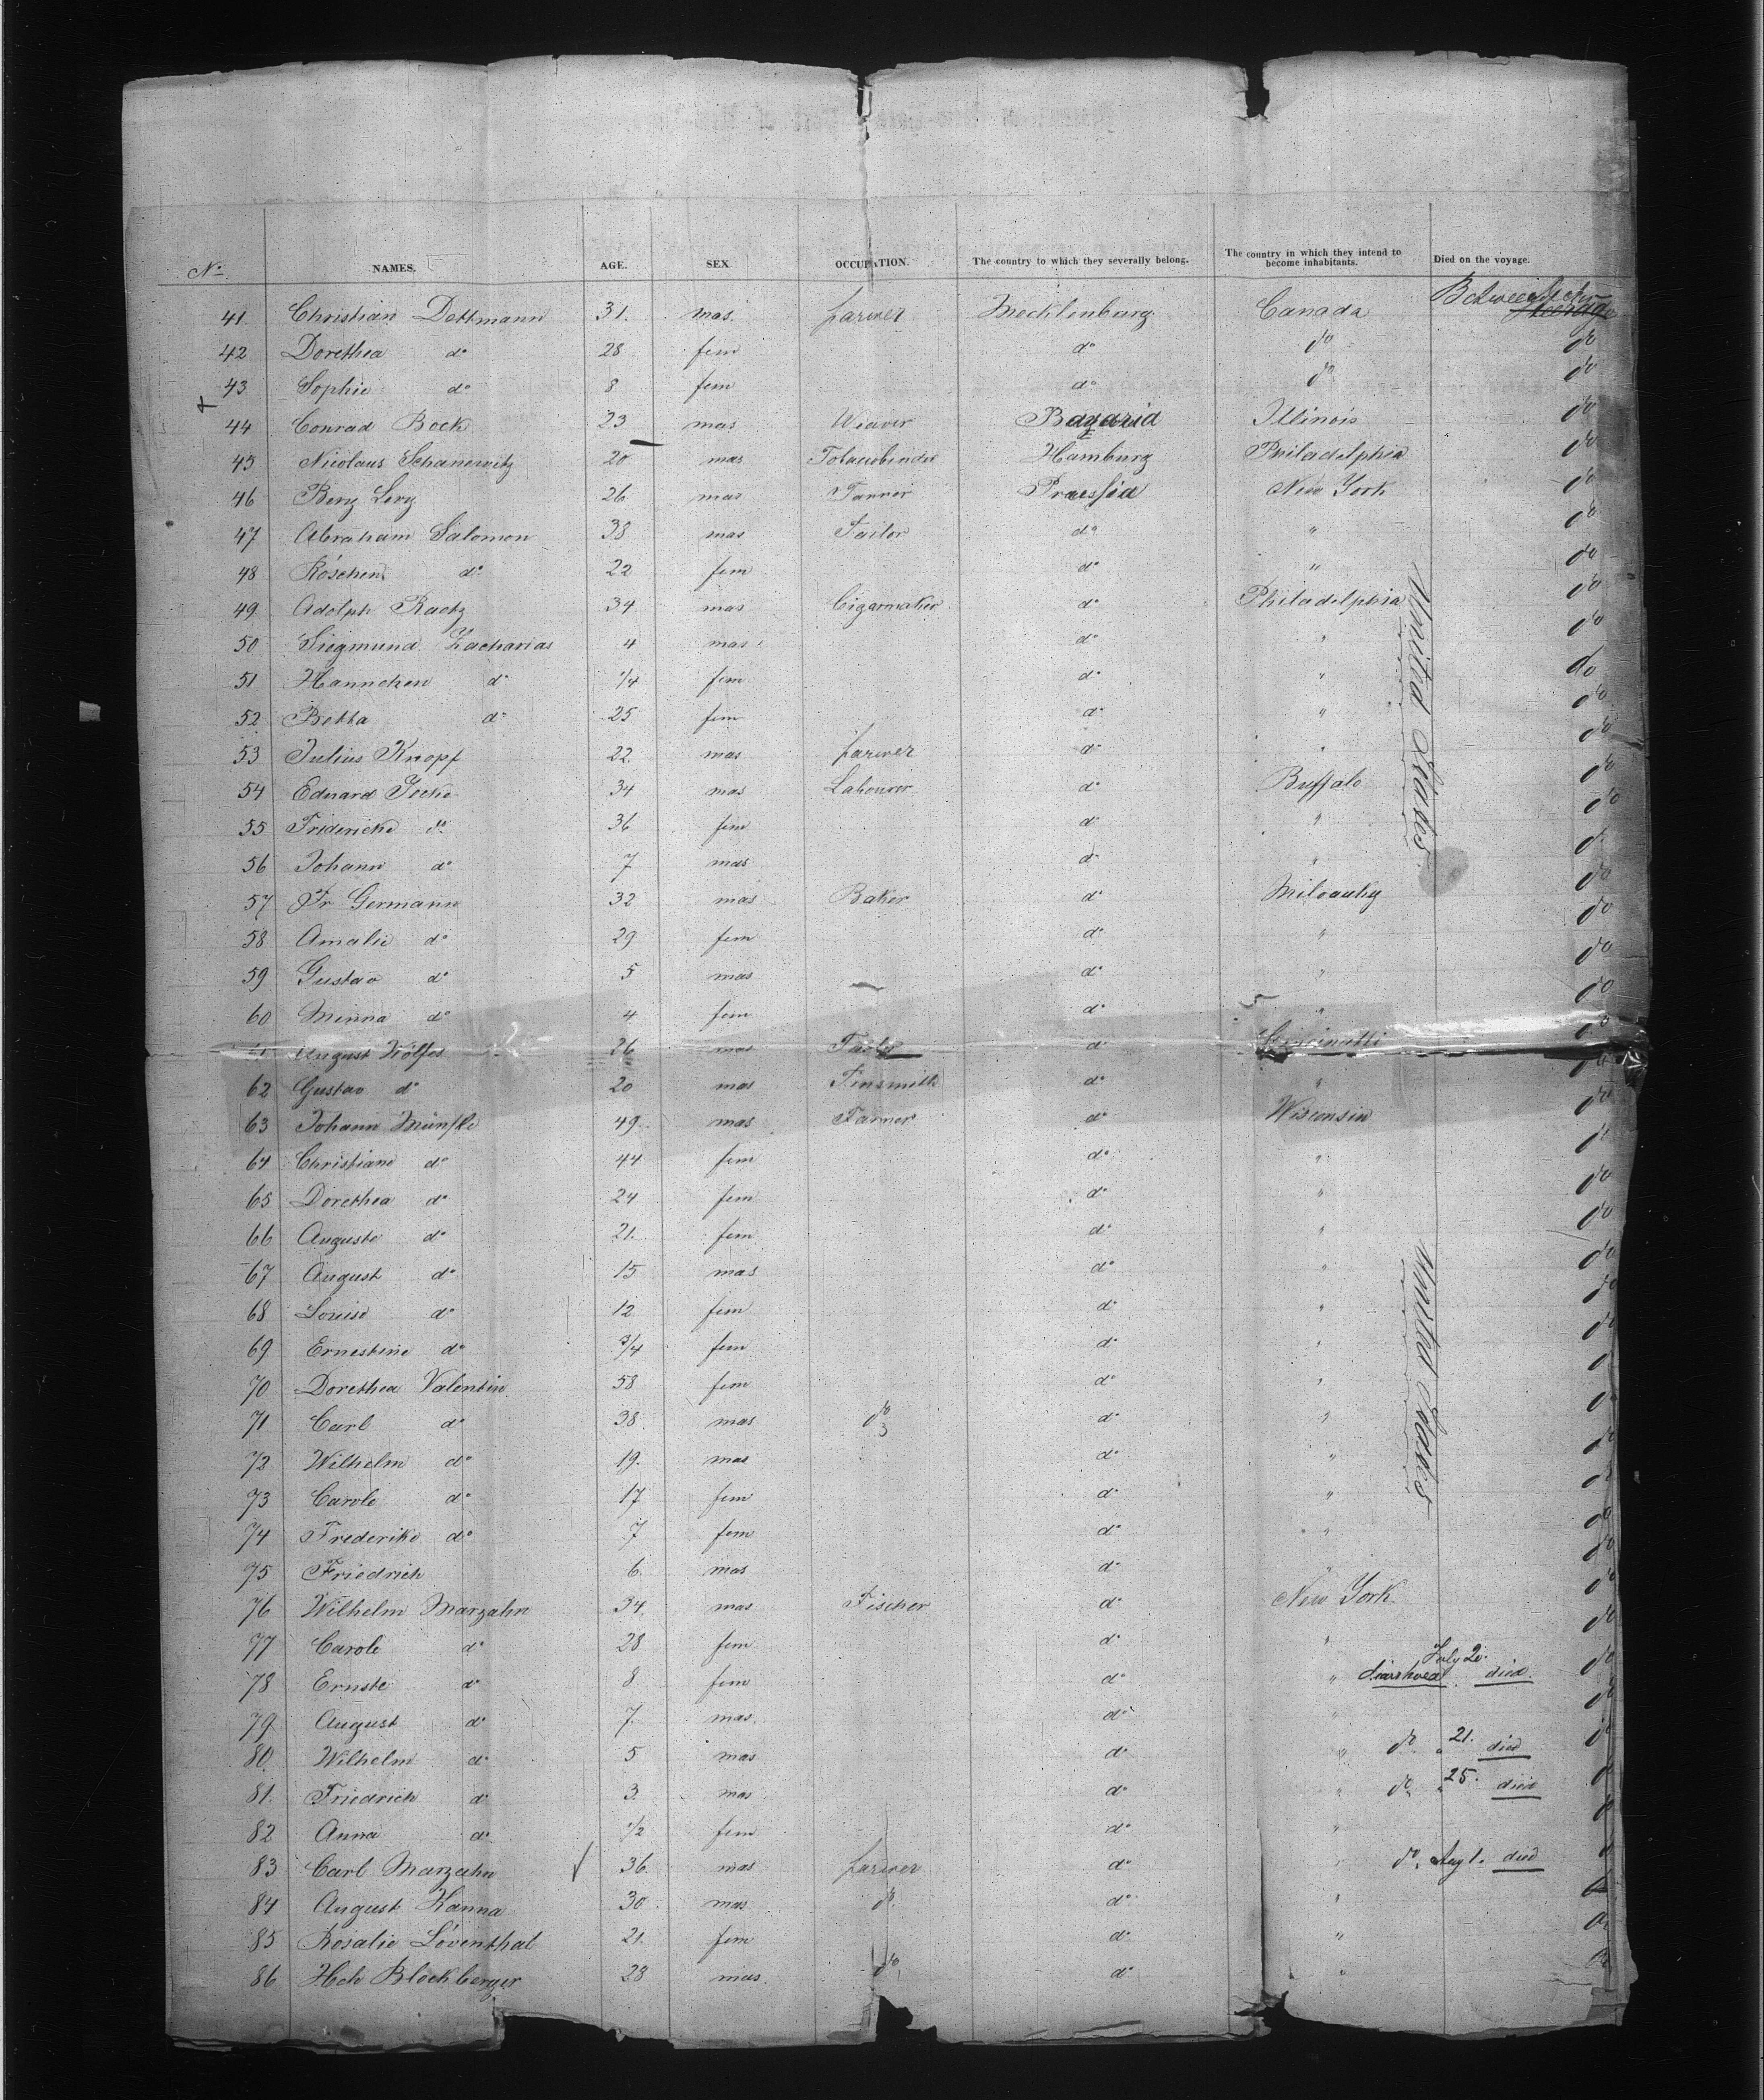 No. NAMES. AGE. SEX. OCCUPATION. The country to which they severally belong. The country in which they intend to become inhabitants. Died on the voyage.
41. Christian Dettmann 31. mas. farmer Mecklenburg Canada Between Decks
42 Dorethea do 28 fem do do do
43 Sophie do 8 fem do do do
44 Conrad Bock 23 mas Weaver Bavaria Illinois do
45 Nicolaus 20 mas Hamburg Philadelphia do
46 Benz Levy 26 mas Prussia New York do
47 Abraham Salomon 38 mas Tailor do " do
48 Röschen do 22 fem do " do
49 Adolph Raetz 34 mas Cigarmaker do Philadelphia do
50 Siegmund Zacharias 4 mas do " do
51 Hannchen do 1/4 fem do " do
52 Betta do 25 fem do " do
53 Julius Knopf 22. mas farmer do " do
54 Eduard 34 mas Labourer do Buffalo do
55 Fridericke do 36 fem do " do
56 Johann do 7 mas do " do
57 Fr Germann 32 mas Baker do Milvauky do
58 Amalie do 29 fem do " do
59 Gustav do 5 mas do " do
60 Minna do 4 fem do " do
61 August Wölfer 26 mas do Cincinatti do
62 Gustav do 20 mas Tinsmith do " do
63 Johann 49 mas Farmer do Wisconsin do
64 Christiane do 44 fem do " do
65 Dorethea do 24 fem do " do
66 Auguste do 21. fem do " do
67 August do 15 mas do " do
68 Louise do 12 fem do " do
69 Ernestine do 3/4 fem do " do
70 Dorethea Valentin 58 fem do " do
71 Carl do 38. mas do do " do
72 Wilhelm do 19. mas do " do
73 Carole do 17 fem do " do
74 Frederike do 7 fem do " do
75 Friedrich 6. mas do " do
76 Wilhelm Marzahn 34. mas Fischer do New York do
77 Carole do 28 fem do " do
78 Ernste do 8 fem do " July 20. died. do
79. August do 7. mas. do " do
80. Wilhelm do 5 mas do " do " 21. died do
81. Friedrich do 3. mas do " do " 25. died do
82 Anna do 1/2 fem do " do
83 Carl Marzahn 36. mas farmer do " do. Aug 1. died do
84 August Hanna 30 mas do. do " do
85 Rosalie Löventhal 21. fem do " do
86 Hch Blockberger 28 mas. do do " do
United States
United States